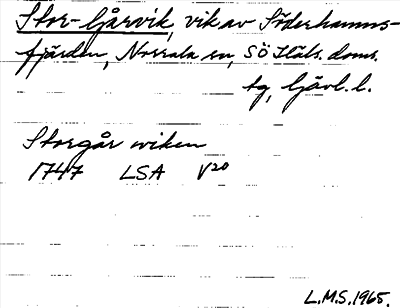 Stor-Gårvik, vik av Söderhamns-
fjärden, Norrala sn, SÖ Häls. doms.
tg, Gävl. l.
Storgår wiken
1747 LSA V20
L.M.S. 1965.